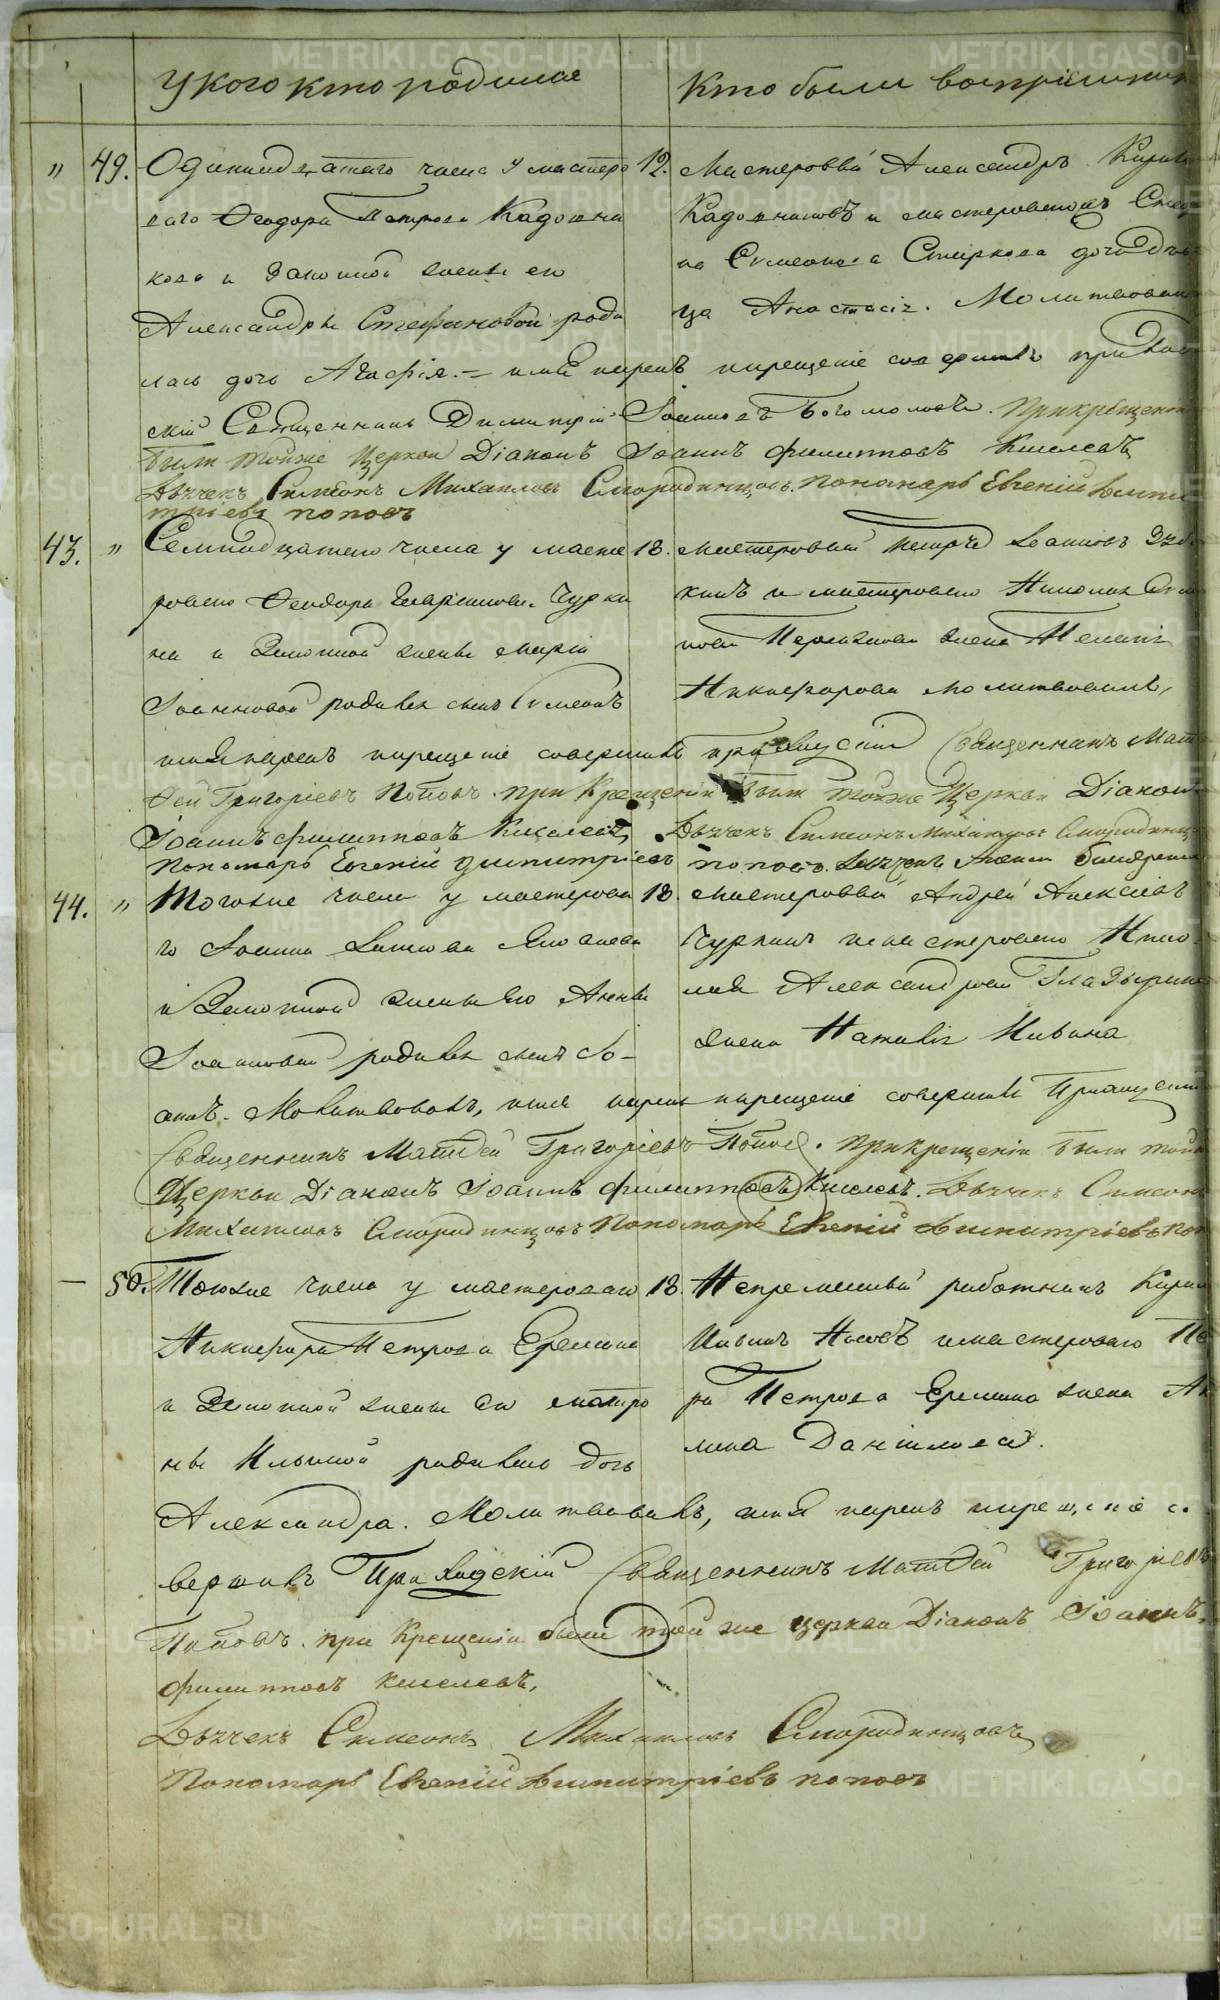 У кого кто родился
Кто были воспрiемники
" 49. Одиннадцатаго числа у мастеро 12. Мастеровый Александръ
ваго Ѳеодора Петрова Кадошни Кадошниковъ и мастероваго
кова и законной жены его на Симеонова Смиркова дочь дѣви
Александры Стефановой роди ца Анастасiя. Молитвовалъ
лась дочь Агафiя. – имя нарекъ и крещенiе совершилъ приход
скiй Священникъ Димитрiй Iоанновъ Богомоловъ. При крещенiи
были тойже Церкви Дiаконъ Iоаннъ Филипповъ Киселевъ
Дьячекъ Симеонъ Михаиловъ Смородинцовъ. Пономарь Евгенiй Дими
трiевъ Поповъ
43. " Семнадцатаго числа у масте 18. мастеровый Петръ Iоанновъ
роваго Ѳеодора Чурки кинъ и мастероваго Николая
на и Законной жены Марiи жена Пелагiя
Iоанновой родился сынъ Симеонъ Никифорова Молитвовалъ,
имя нарекъ и крещенiе совершилъ приходскiй Священникъ Мат
ѳей Григорiевъ Поповъ. при Крещенiи были тойже Церкви Дiаконъ
Iоаннъ Филипповъ Киселевъ Дьячекъ Симеонъ Михаиловъ Смородинц
Пономарь Евгенiй Димитрiевъ Поповъ.
44. " Тогоже числа у мастерова 18. мастеровый Андрей Алексѣевъ
го Iоанна Яковлева Чуркинъ и мастероваго Нико
и Законной жены его Анны лая Александрова Глазырина
Iоанновой родился сынъ Iо– жена Наталiя Ивана
аннъ. Молитвовалъ, имя нарекъ и крещенiе совершилъ Приходскiй
Священникъ Матѳей Григорiевъ Поповъ. При крещенiи были той
Церкви Дiаконъ Iоаннъ Филипповъ Киселевъ. Дьячекъ Симеонъ
Михаиловъ Смородинцовъ Пономарь Евгенiй Димитрiевъ Поп
— 50. Тогоже числа у мастероваго 18. Непременный работникъ
Никифора Петрова Еремина Ивановъ Носовъ и мастероваго
и Законной жены его Матро ра Петрова Еремина жена
ны Ильиной родилась дочь лина Данiилова.
Александра. Молитвовалъ, имя нарекъ и крещенiе со
вершилъ Приходскiй Священникъ Матѳей Григорiевъ
Поповъ. при Крещенiи были той же церкви Дiаконъ Iоаннъ
Филипповъ Киселевъ.
Дьячекъ Симеонъ Михаиловъ Смородинцовъ
Пономарь Евгенiй Димитрiевъ Поповъ
METRIKI.GASO-URAL.RU